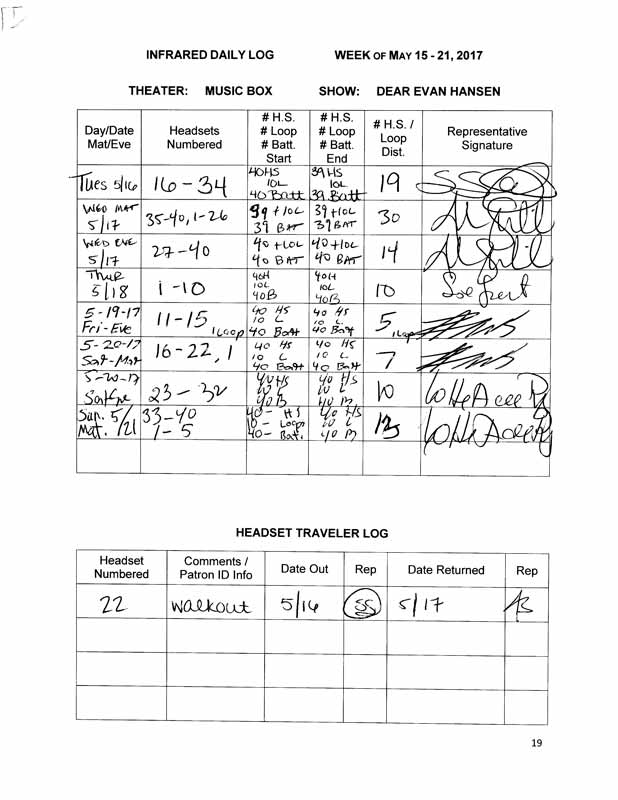 INFRARED DAILY LOG WEEK OF MAY 15 - 21, 2017
THEATER: MUSIC BOX SHOW: DEAR EVAN HANSEN
Day/Date Mat/Eve Headsets Numbered # H.S. # Loop # Batt. Start # H.S. # Loop # Batt. End # H.S. / Loop Dist. Representative Signature
Tues 5/16 16-34 40HS 10L 40 Batt 39HS 10L 39 Batt 19
WED MAT 5/17 35-40, 1-26 39 +10L 39 BAT 39+10L 39 BAT 30
WED EVE 5/17 27-40 40 +10L 40 BAT 40+10L 40 BAT 14
Thur 5/18 1-10 40H 10L 40B 40H 10L 40B 10
5-19-17 Fri-Eve 11-15 1 Loop 40 HS 10 L 40 Batt 40 HS 10 L 40 Batt 5 1 Loop
5-20-17 Sat-Mat 16-22, 1 40 HS 10 L 40 Batt 40 HS 10 L 40 Batt 7
5-20-17 Sat Eve 23-32 40 HS 10 L 40 B 40 HS 10 L 40 B 10
Sun. 5/21 Mat. 33-40 1-5 40- HS 10- Loops 40- Bat. 40 HS 10 L 40 B 13
HEADSET TRAVELER LOG
Headset Numbered Comments / Patron ID Info Date Out Rep Date Returned Rep
22 walkout 5/16 SS 5/17
19